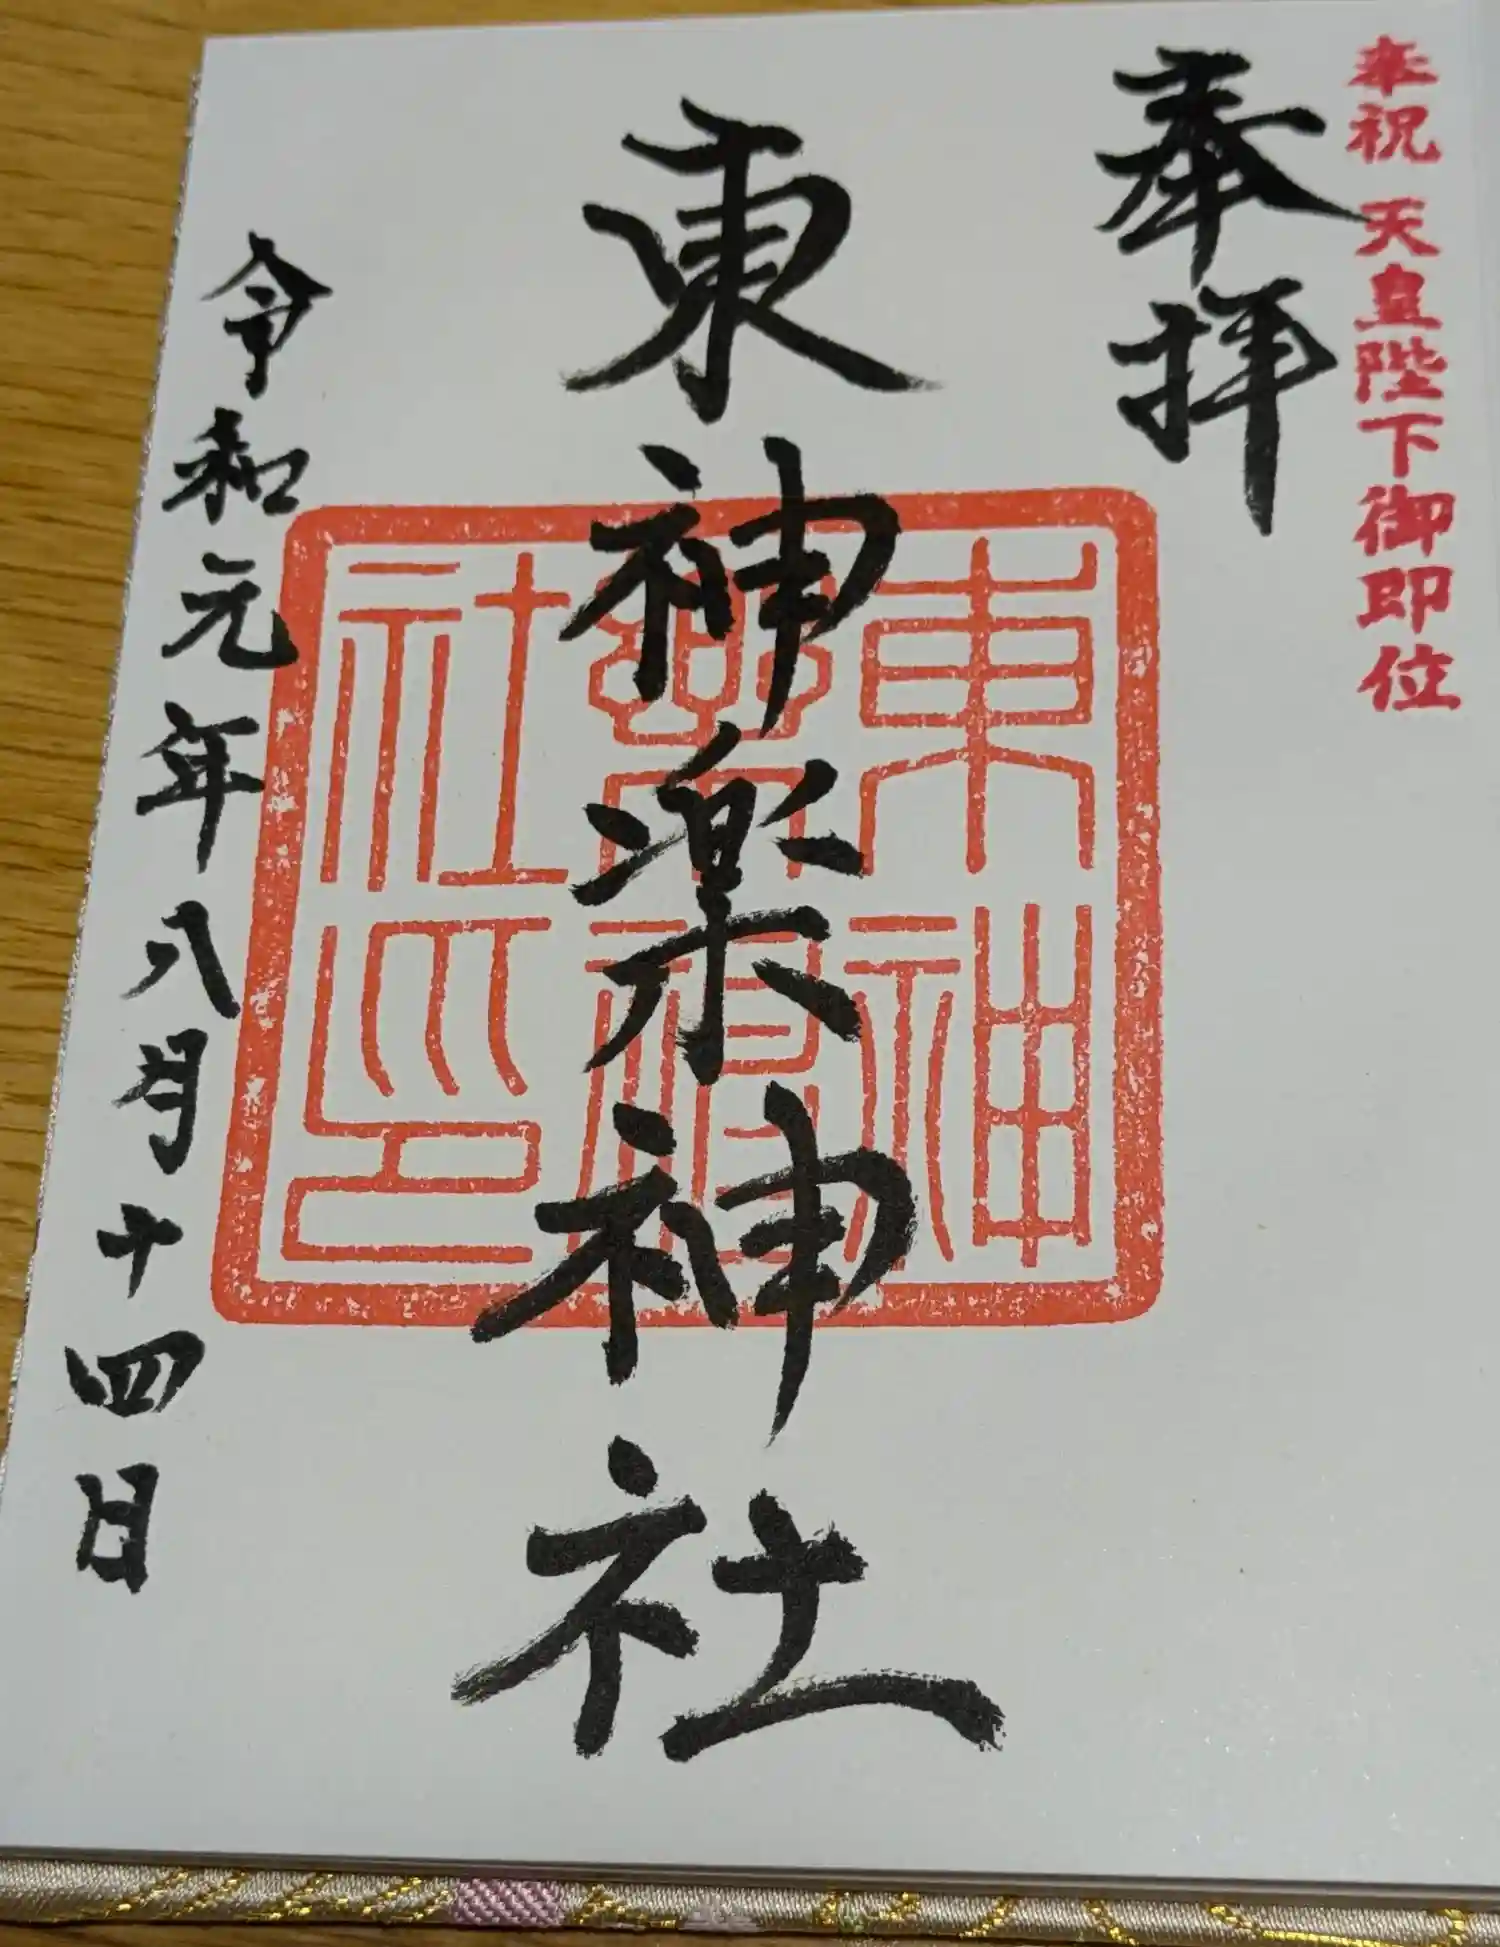 奉祝 天皇陛下御即位
奉拝
東神楽神社
東神
楽神
社印
令和元年八月十四日